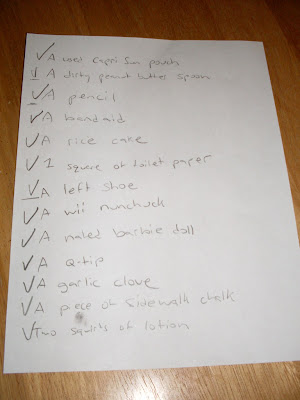 ✓ A used Capri Sun pouch
✓ A dirty peanut butter spoon
✓ A pencil
✓ A bandaid
✓ A rice cake
✓ 1 square of toilet paper
✓ A left shoe
✓ A wii nunchuck
✓ A naked barbie doll
✓ A Q-tip
✓ A garlic clove
✓ A piece of sidewalk chalk
✓ Two squirts of lotion